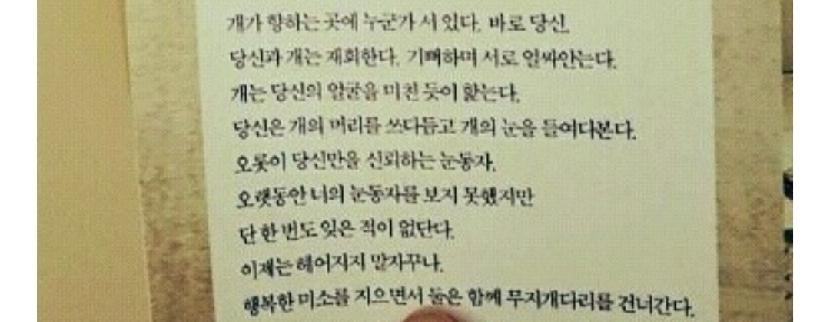 개가 향하는 곳에 누군가 서 있다. 바로 당신.
당신과 개는 재회한다. 기뻐하며 서로 얼싸안는다.
개는 당신의 얼굴을 미친 듯이 핥는다.
당신은 개의 머리를 쓰다듬고 개의 눈을 들여다본다.
오롯이 당신만을 신뢰하는 눈동자.
오랫동안 너의 눈동자를 보지 못했지만
단 한 번도 잊은 적이 없단다.
이제는 헤어지지 말자꾸나.
행복한 미소를 지으면서 둘은 함께 무지개다리를 건너간다.